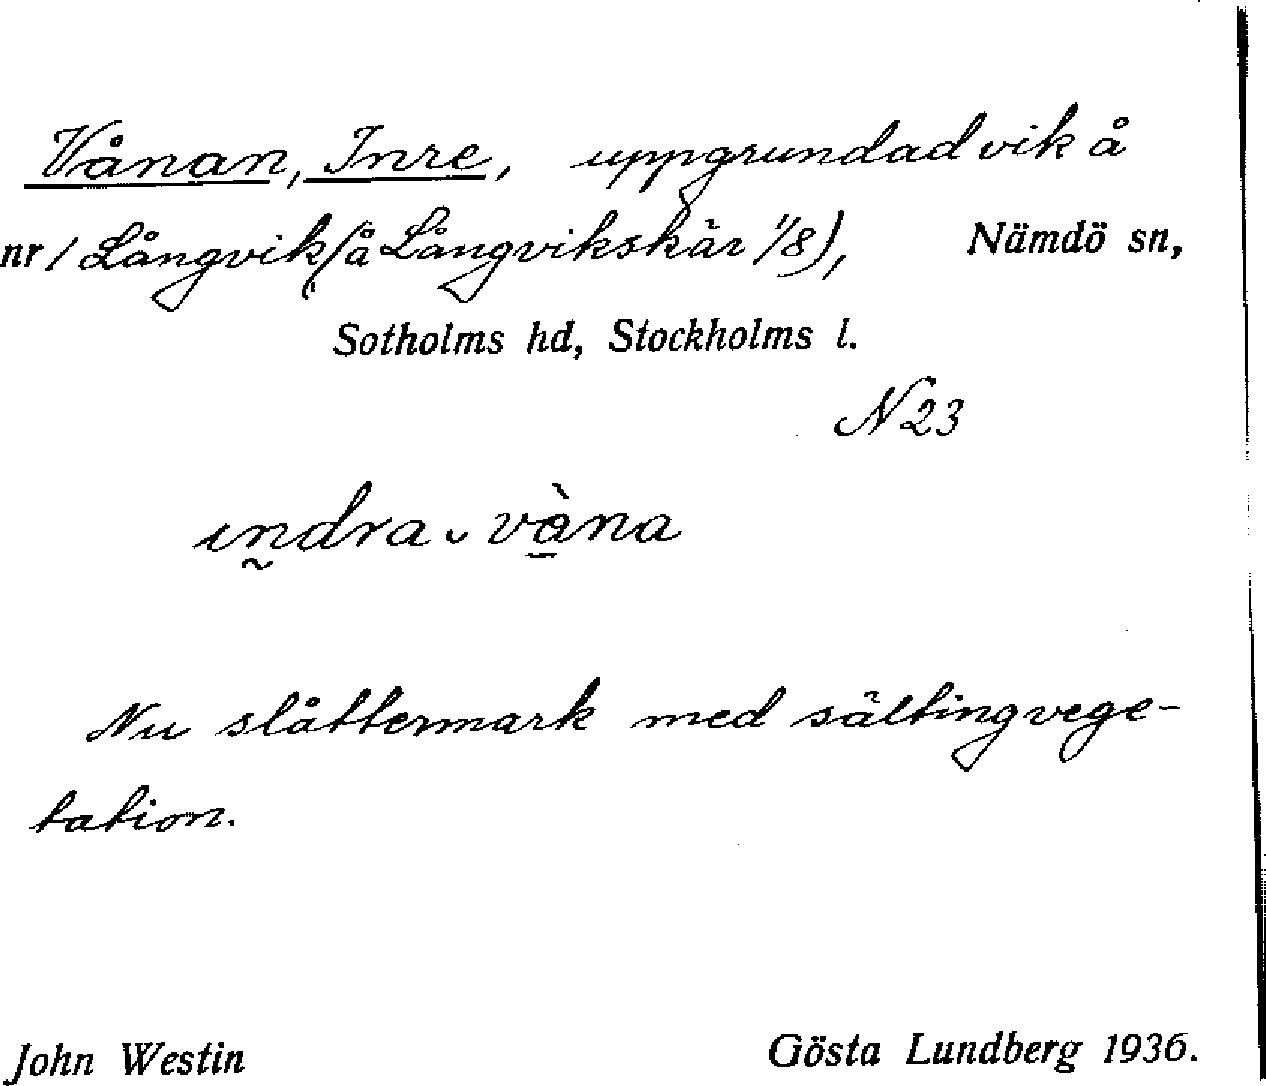 Vånan, Inre, uppgrundad vik å
nr 1 Långvik (å Långvikskär 1/8), Nämdö sn,
Sotholms hd, Stockholms l.
N 23
ın̰dra ᴗ vò̱na
Nu slåttermark med sältingvege-
tation.
John Westin Gösta Lundberg 1936.